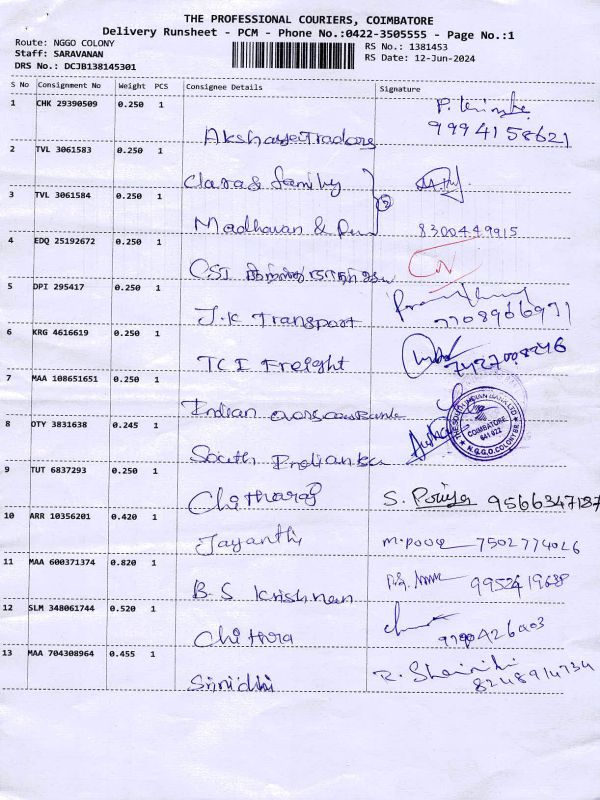 THE PROFESSIONAL COURIERS, COIMBATORE
Delivery Runsheet - PCM - Phone No.:0422-3505555 - Page No.:1
Route: NGGO COLONY
RS No.: 1381453
Staff: SARAVANAN
RS Date: 12-Jun-2024
DRS No.: DCJB138145301
S No Consignment No Weight PCS Consignee Details Signature
1 CHK 29390509 0.250 1
9994158621
2 TVL 3061583 0.250 1
Clara & family
3 TVL 3061584 0.250 1 2
Madhavan & 8300449915
4 EDQ 25192672 0.250 1
CSI
5 DPI 295417 0.250 1
J.K Transport 7708966971
6 KRG 4616619 0.250 1
TCI Freight 7427008246
7 MAA 108651651 0.250 1
Indian
THE SOUTH INDIAN BANK LTD
COIMBATORE
641 022
N.G.G.O.COLONY BR.
8 OTY 3831638 0.245 1
South
9 TUT 6837293 0.250 1
Chitharaj S. 9566347187
10 ARR 10356201 0.420 1
Jayanthi 7502774026
11 MAA 600371374 0.820 1
B.S Krishnan 9952419638
12 SLM 348061744 0.520 1
Chithra
13 MAA 704308964 0.455 1
Srinidhi 8248914734